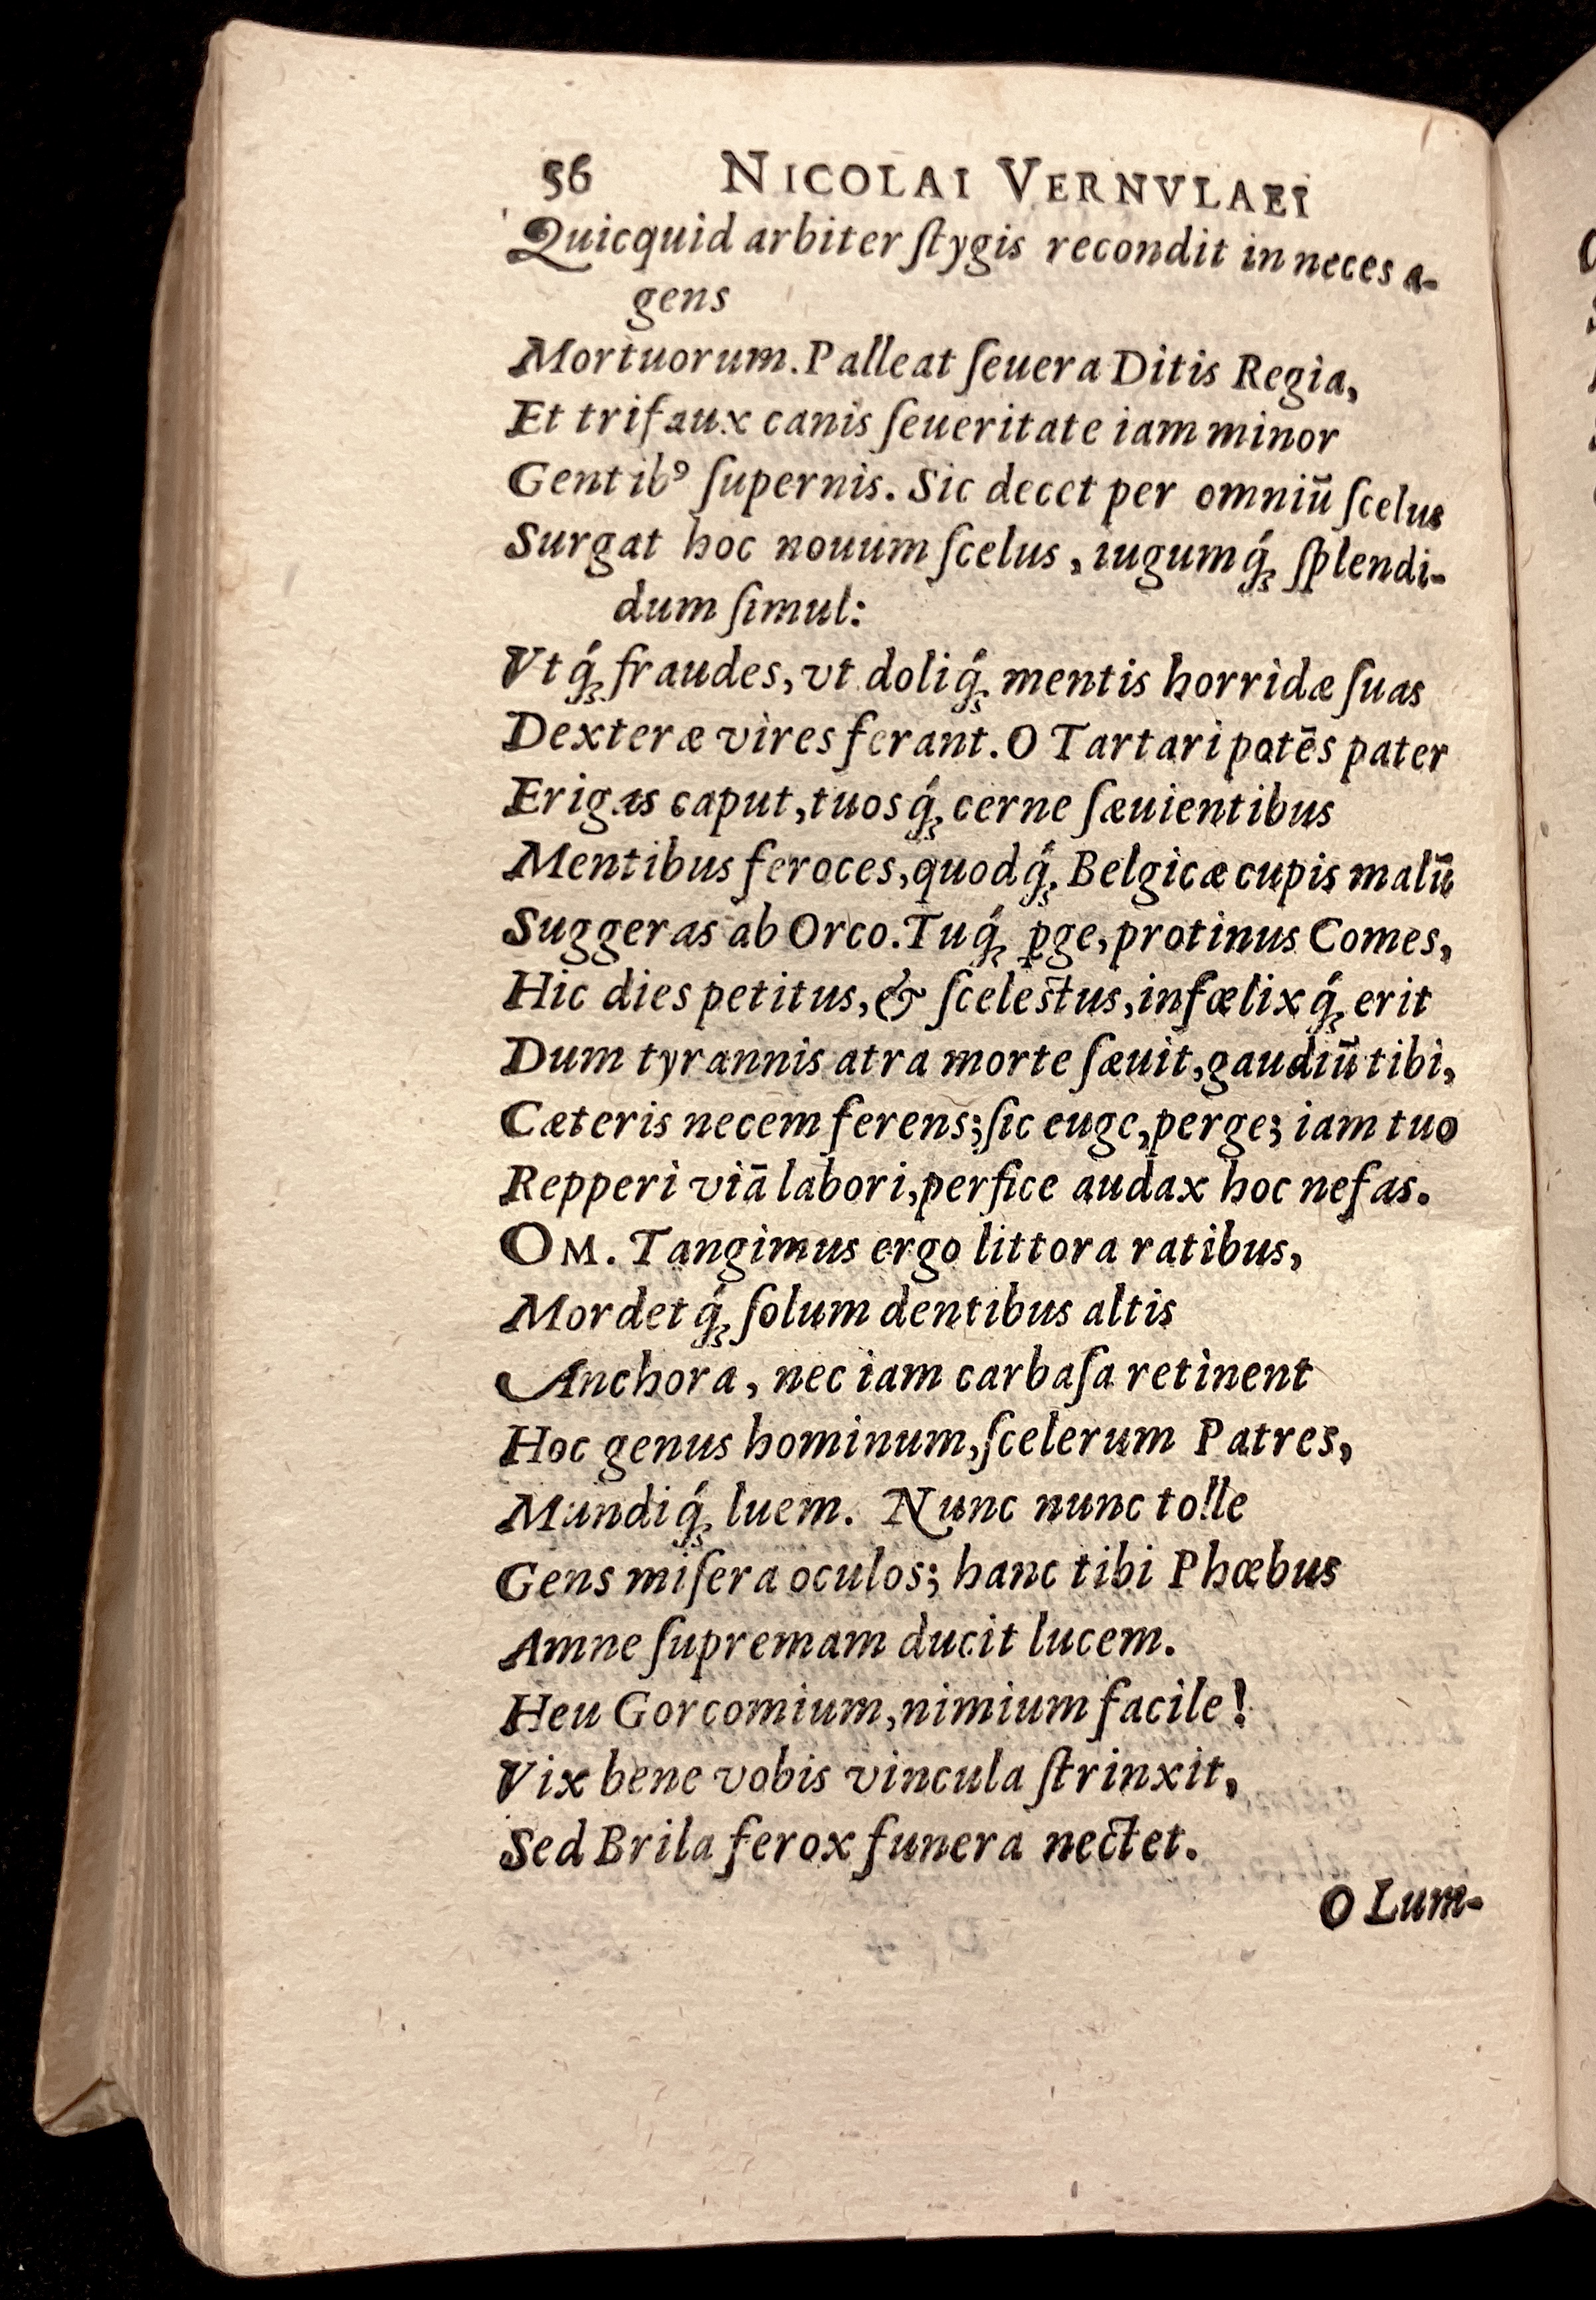 56 NICOLAI VERNVLAEI
Quicquid arbiter ſtygis recondit in neces a-
gens
Mortuorum. Palleat ſeuera Ditis Regia,
Et trifaux canis ſeueritate iam minor
Gentibꝰ ſupernis. Sic decet per omniū ſcelus
Surgat hoc nouum ſcelus, iugumq́ꝫ ſplendi-
dum ſimul:
Vtq́ꝫ fraudes, vt doliq́ꝫ mentis horridæ ſuas
Dexteræ vires ferant. O Tartari potēs pater
Erigas caput, tuosq́ꝫ cerne ſæuientibus
Mentibus feroces, quodq́ꝫ Belgicæ cupis malū
Suggeras ab Orco. Tuq́ꝫ ꝑge, protinus Comes,
Hic dies petitus, & ſceleſtus, infœlixq́ꝫ erit
Dum tyrannis atra morte ſæuit, gaudiū tibi,
Cæteris necem ferens; ſic euge, perge; iam tuo
Repperi viā labori, perfice audax hoc nefas.
OM. Tangimus ergo littora ratibus,
Mordetq́ꝫ ſolum dentibus altis
Anchora, nec iam carbaſa retinent
Hoc genus hominum, ſcelerum Patres,
Mundiq́ꝫ luem. Nunc nunc tolle
Gens miſera oculos; hanc tibi Phœbus
Amne ſupremam ducit lucem.
Heu Gorcomium, nimium facile!
Vix bene vobis vincula ſtrinxit,
Sed Brila ferox funera nectet.
O Lum-